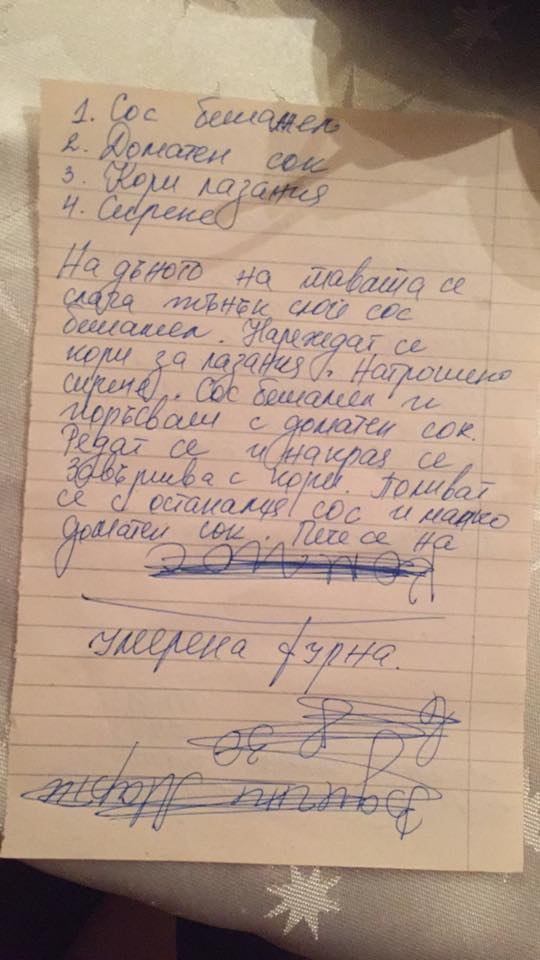 1. Сос бешамел
2. Доматен сок
3. Кори лазания
4. Сирене
На дъното на тавата се
слага тънък слой сос
бешамел. Нареждат се
кори за лазания. Натрошено
сирене. Сос бешамел и
поръсвам с доматен сок.
Редат се и накрая се
завършва с кори. Поливат
се с останалия сос и малко
доматен сок. Пече се на
умерена фурна.